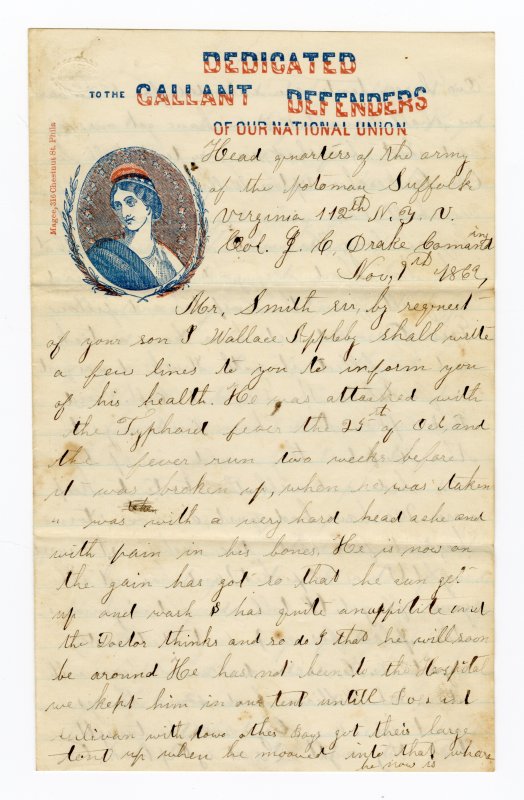 DEDICATED
TO THE GALLANT DEFENDERS
OF OUR NATIONAL UNION
Magee, 316 Chestnut St. Phila
Head quarters of the army
of the potomac Suffolk
Virginia 112th N. Y. V.
Col. J. C. Drake Comanding
Nov, 9rd 1862,
Mr. Smith sir, by request
of your son I Wallace Appleby shall write
a few lines to you to inform you
of his health. He was attacked with
the Typhoid fever the 25st of Oct, and
the fever run two weeks before
it was broken up, when he was taken
" was with a very hard head ache and
with pain in his bones. He is now on
the gain has got so that he can get
up and wash & has quite an appitite and
the Doctor thinks and so do I that he will soon
be around He has not been to the Hospital
we kept him in our tent untill
with two other Boys got their large
tent up when he mooved into that whare
he now is